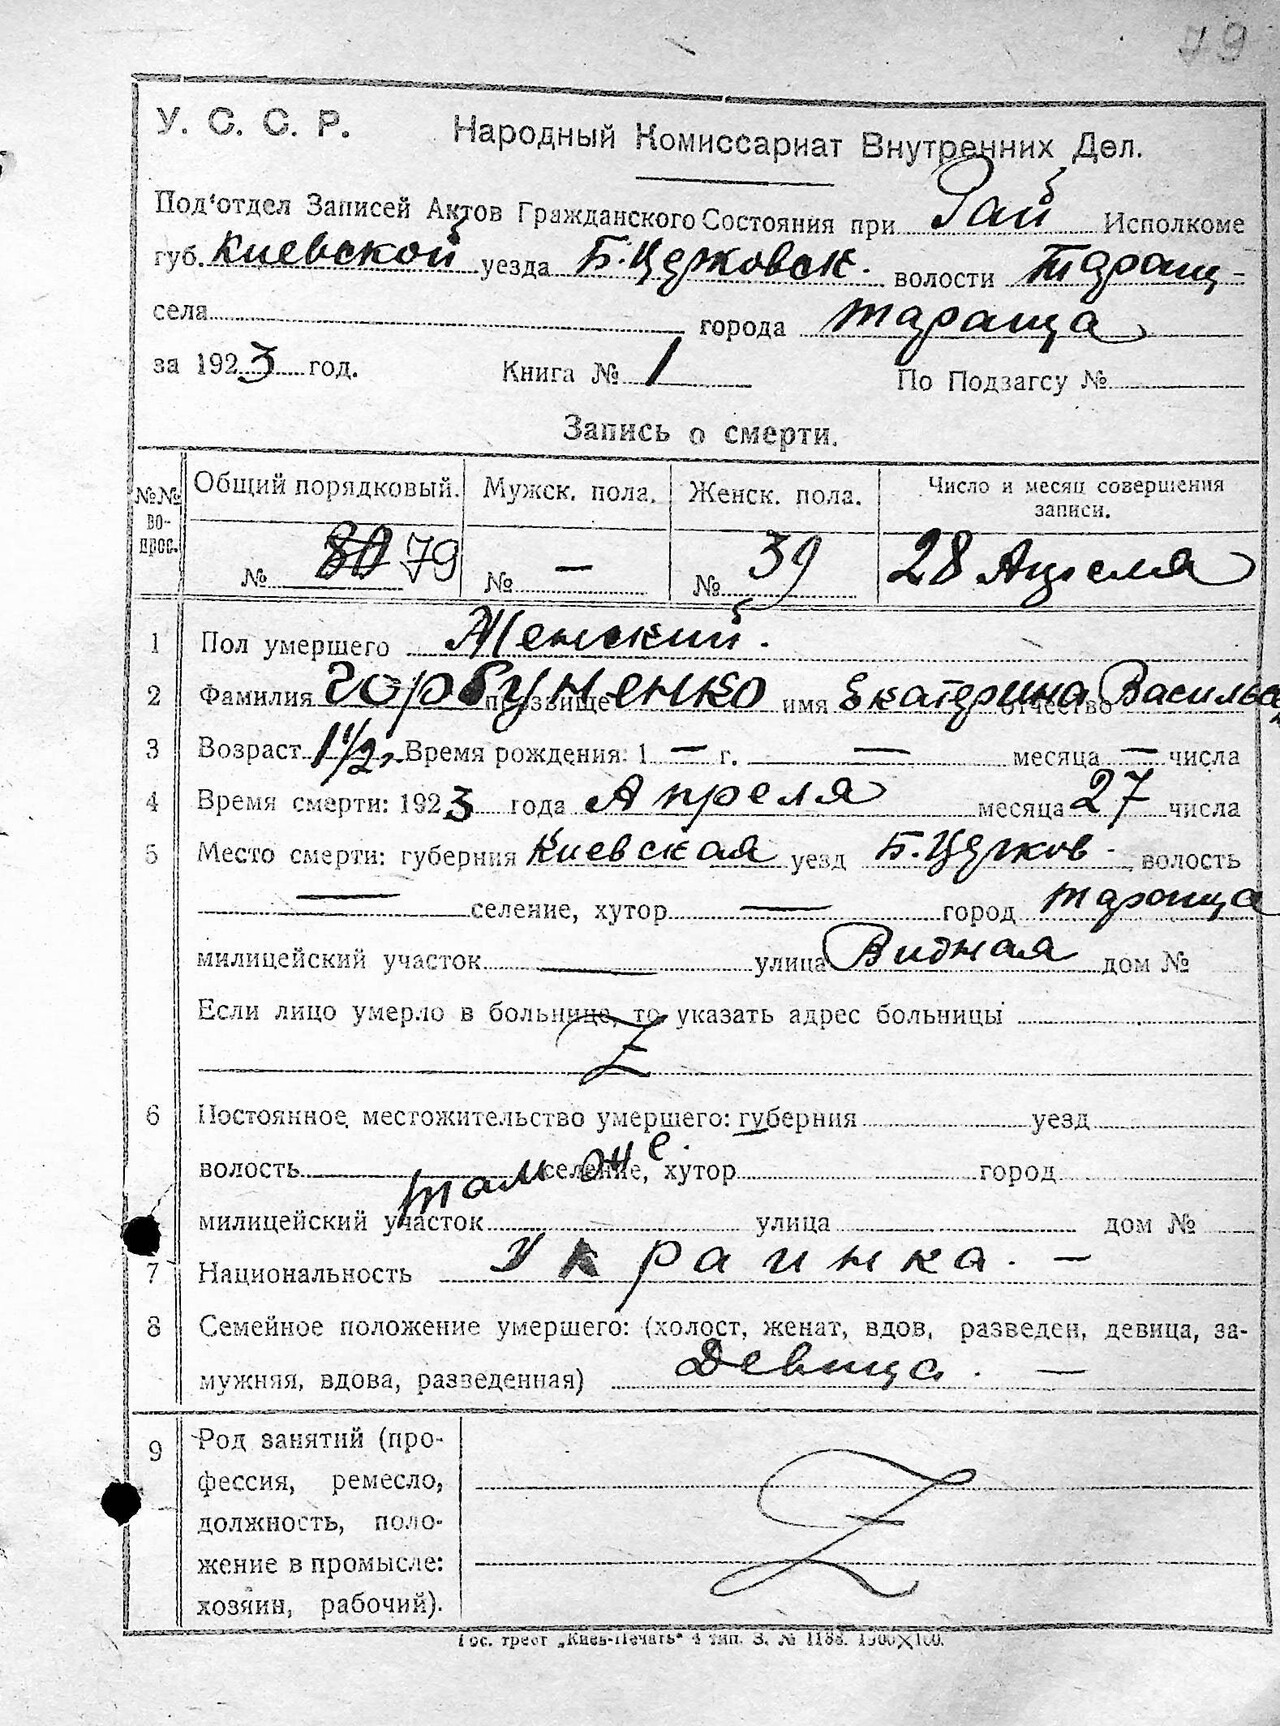 79
У. С. С. Р. Народный Комиссариат Внутренних Дел.
Под'отдел Записей Актов Гражданского Состояния при Рай Исполкоме
губ. Киевской уезда Б. Церковск. волости Таращ-
села города Тараща
за 1923 год. Книга № 1 По Подзагсу №
Запись о смерти.
№№ вопрос. Общий порядковый. Мужск. пола. Женск. пола. Число и месяц совершения записи.
№ 80 79 № — № 39 28 Апреля
1 Пол умершего Женский.
2 Фамилия Горбуненко прозвище имя Екатерина отчество Васильев
3 Возраст 1 1/2 г. Время рождения: 1 — г. — месяца — числа
4 Время смерти: 1923 года Апреля месяца 27 числа
5 Место смерти: губерния Киевская уезд Б. Церков- волость
— селение, хутор — город Тараща
милицейский участок — улица Видная дом №
Если лицо умерло в больнице, то указать адрес больницы
Z
6 Постоянное местожительство умершего: губерния уезд
волость селение, хутор город
там же.
милицейский участок улица дом №
7 Национальность Украинка. —
8 Семейное положение умершего: (холост, женат, вдов, разведен, девица, за-
мужняя, вдова, разведенная) Девица. —
9 Род занятий (про-
фессия, ремесло,
должность, поло-
жение в промысле:
хозяин, рабочий).
Z
Гос. трест „Киев-Печать" 4 тип. З. № 1188. 1500×100.